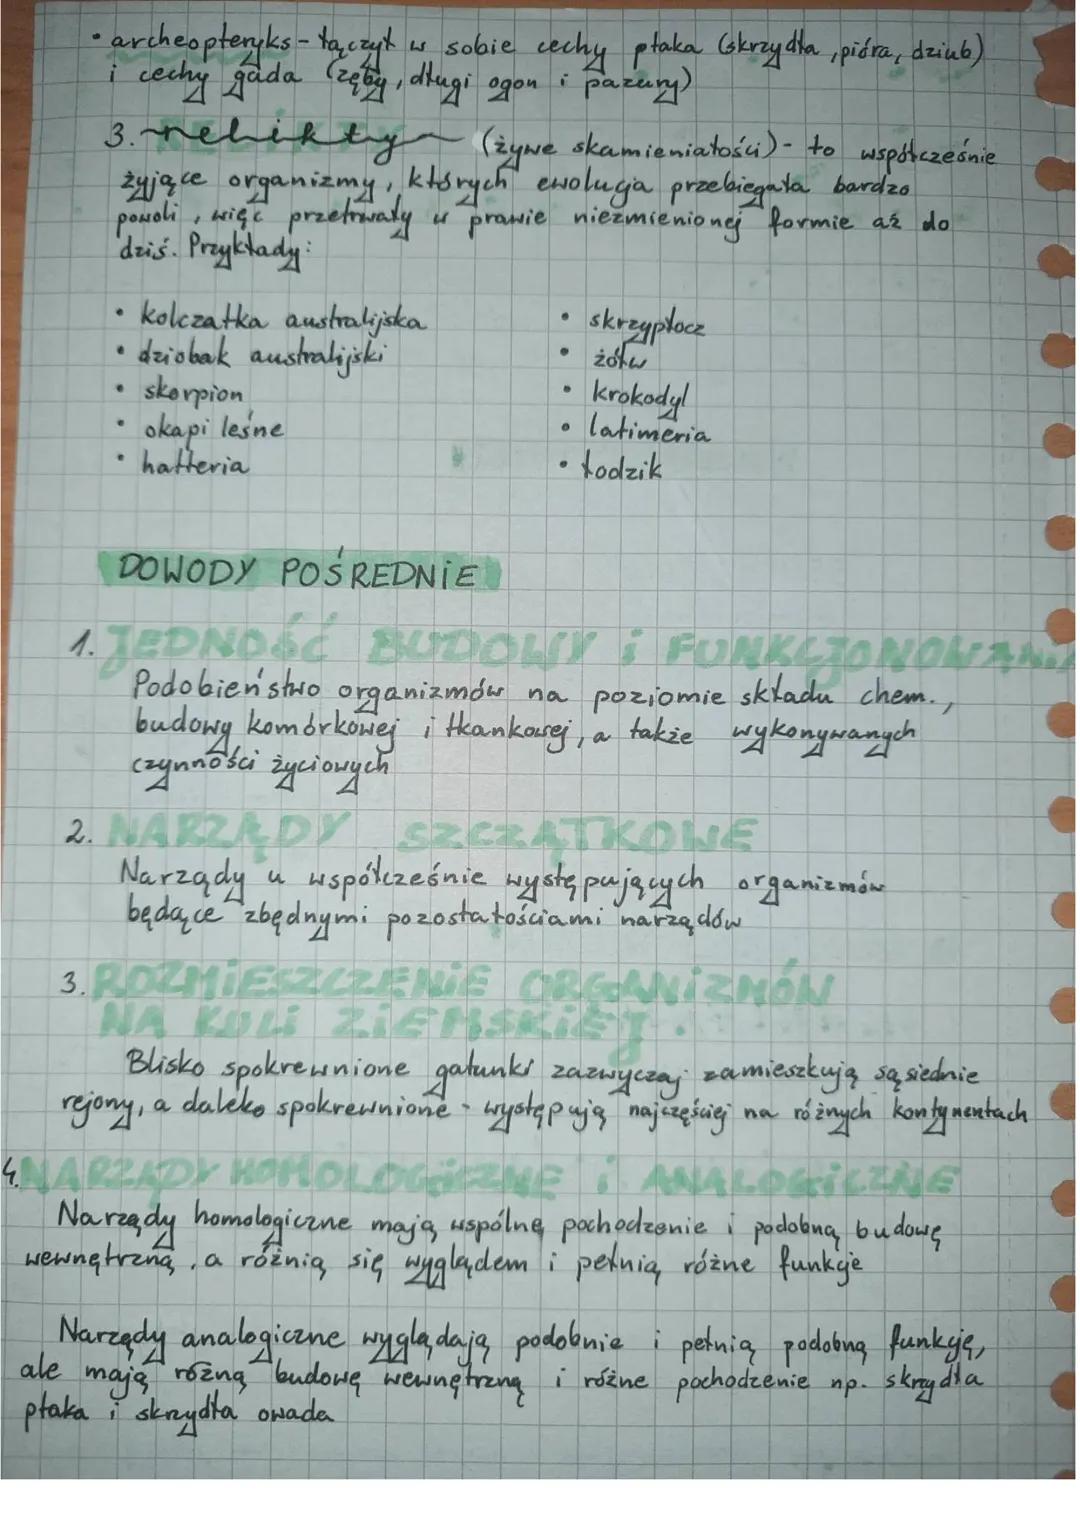 • archeopteryks - łączył w sobie cechy ptaka (skrzydła, pióra, dziub)
i cechy gada (zęby, długi ogon i pazury)
3. relikty (żywe skamieniałości) - to współcześnie
żyjące organizmy, których ewolucja przebiegała bardzo
powoli, więc przetrwały w prawie niezmienionej formie aż do
dziś. Przykłady:
• kolczatka australijska
• dziobak australijski
• skorpion
• okapi leśne
• hatteria
• skrzypłocz
• żółw
• krokodyl
• latimeria
• łodzik
DOWODY POŚREDNIE
1. JEDNOŚĆ BUDOWY i FUNKCJONOWANIA
Podobieństwo organizmów na poziomie składu chem.,
budowy komórkowej i tkankowej, a także wykonywanych
czynności życiowych
2. NARZĄDY SZCZĄTKOWE
Narządy u współcześnie występujących organizmów
będące zbędnymi pozostałościami narządów
3. ROZMIESZCZENIE ORGANIZMÓW
NA KULI ZIEMSKIEJ.
Blisko spokrewnione gatunki zazwyczaj zamieszkują sąsiednie
rejony, a daleko spokrewnione - występują najczęściej na różnych kontynentach
4. NARZĄDY HOMOLOGICZNE i ANALOGICZNE
Narządy homologiczne mają wspólne pochodzenie i podobną budowę
wewnętrzną, a różnią się wyglądem i pełnią różne funkcje
Narządy analogiczne wyglądają podobnie i pełnią podobną funkcję,
ale mają różną budowę wewnętrzną i różne pochodzenie np. skrzydła
ptaka i skrzydła owada